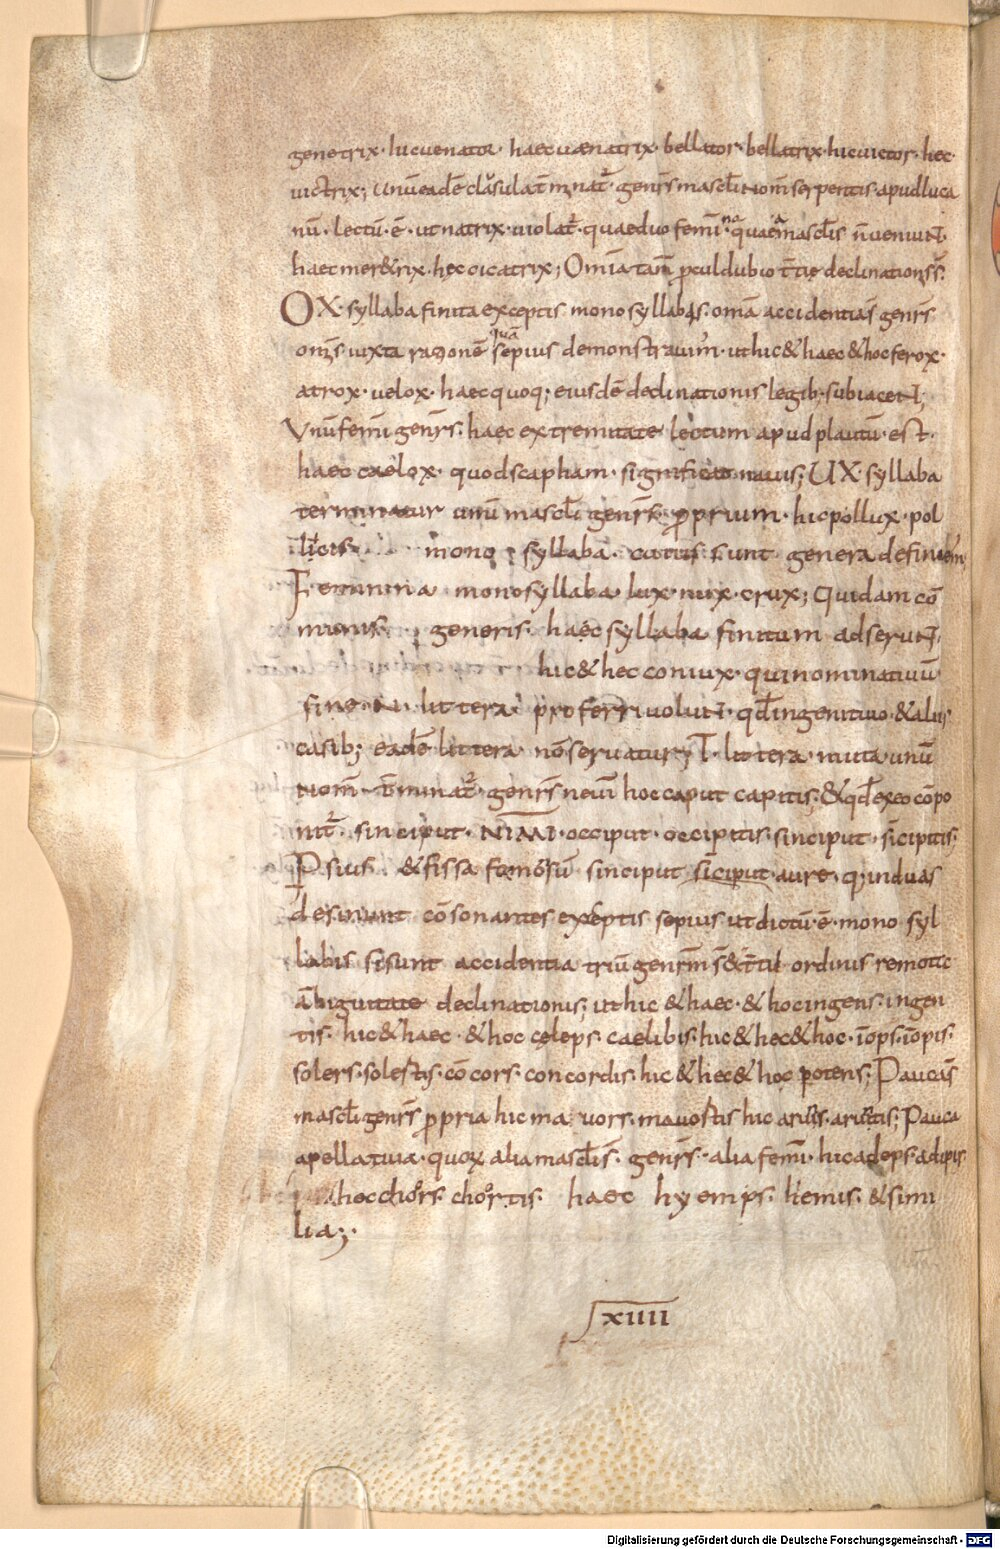 genetrix · hic venator · haec uaenatrix · bellator · bellatrix · hic uictor · hec
uictrix ; unū eadē clausula t̄minat᷑ · gen̄is mascl̄i nom̄ serpentis · apud luca
nū · lectū · ē · ut natrix · uiolat᷑ · quae duo femīna quae masclis īueniunt
haec mer&rix · hęc cicatrix ; Omīa tam̄ p̱cul dubio t̄tię declinationis s̄t
OX · syllaba finita exceptis monosyllabis · omīa accidentia s̄ gen̄is
om̄is iuxta rationē quā sępius demonstrauim̄ · ut hic & haec & hoc ferox ·
atrox · uelox · haec quoq; eiusdē declinationis legib; subiacent ;
Vnū femī gen̄is · haec extremitate lectum apud plautū · est ·
haec caelox · quod scapham · significat nauis ; UX · syllaba
terminatur unū mascl̄i gen̄is p̱prium · hic pollux · pol
lucis mono syllaba · cuius sunt genera definiem̄
Feminina monosyllaba lux · nux · crux ; Quidam cō
munis generis · haec syllaba finitum adserunt ·
hic & hec coniux · qui nominatiuū
sine · N · littera proferri uolunt · qd̄ in genitiuo & aliis
casib; eadē littera nō seruatur ; T · littera muta unū
nom̄ t̄minat᷑ · gen̄is neut̄ hoc caput capitis ; & qd̄ ex eo cōpo
nit᷑ · sinciput · NIMI · occiput · occipitis · sinciput · sīcipitis ·
P̱sius · & fissa fumosū sinciput sīciput aure · q; in duas
desinunt cōsonantes exceptis sępius ut dictū · ē · mono syl
labis si sunt accidentia triū gen̄um s̄ & t̄tii ordinis remotę
ābiguitate declinationis ; ut hic & haec · & hoc ingens · ingen
tis · hic & haec · & hoc cęleps · caelibis · hic & hec & hoc · īops · īopis ·
solers · solertis · cōcors · concordis · hic & hec & hoc potens ; Pauca s̄
mascl̄i gen̄is p̱pria hic ma uors · mauortis hic · Pauca
apellatiua · quoꝝ alia mascl̄is · gen̄is · alia femī · hic adeps · adipis
hec chors chortis · haec hyemps · hiemis · & simi
lia ; ·
xiiii
Digitalisierung gefördert durch die Deutsche Forschungsgemeinschaft · DFG